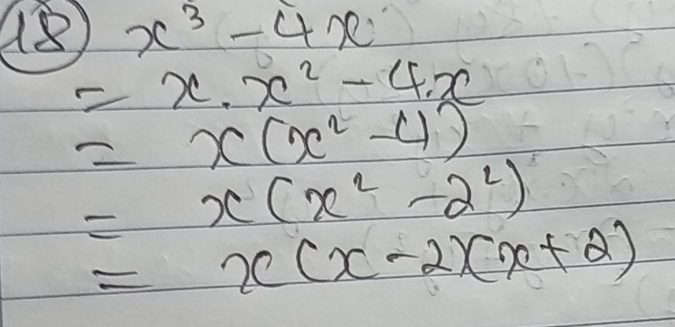 18) x³ - 4x
= x.x² - 4.x
= x(x² - 4)
= x(x² - 2²)
= x(x - 2)(x + 2)